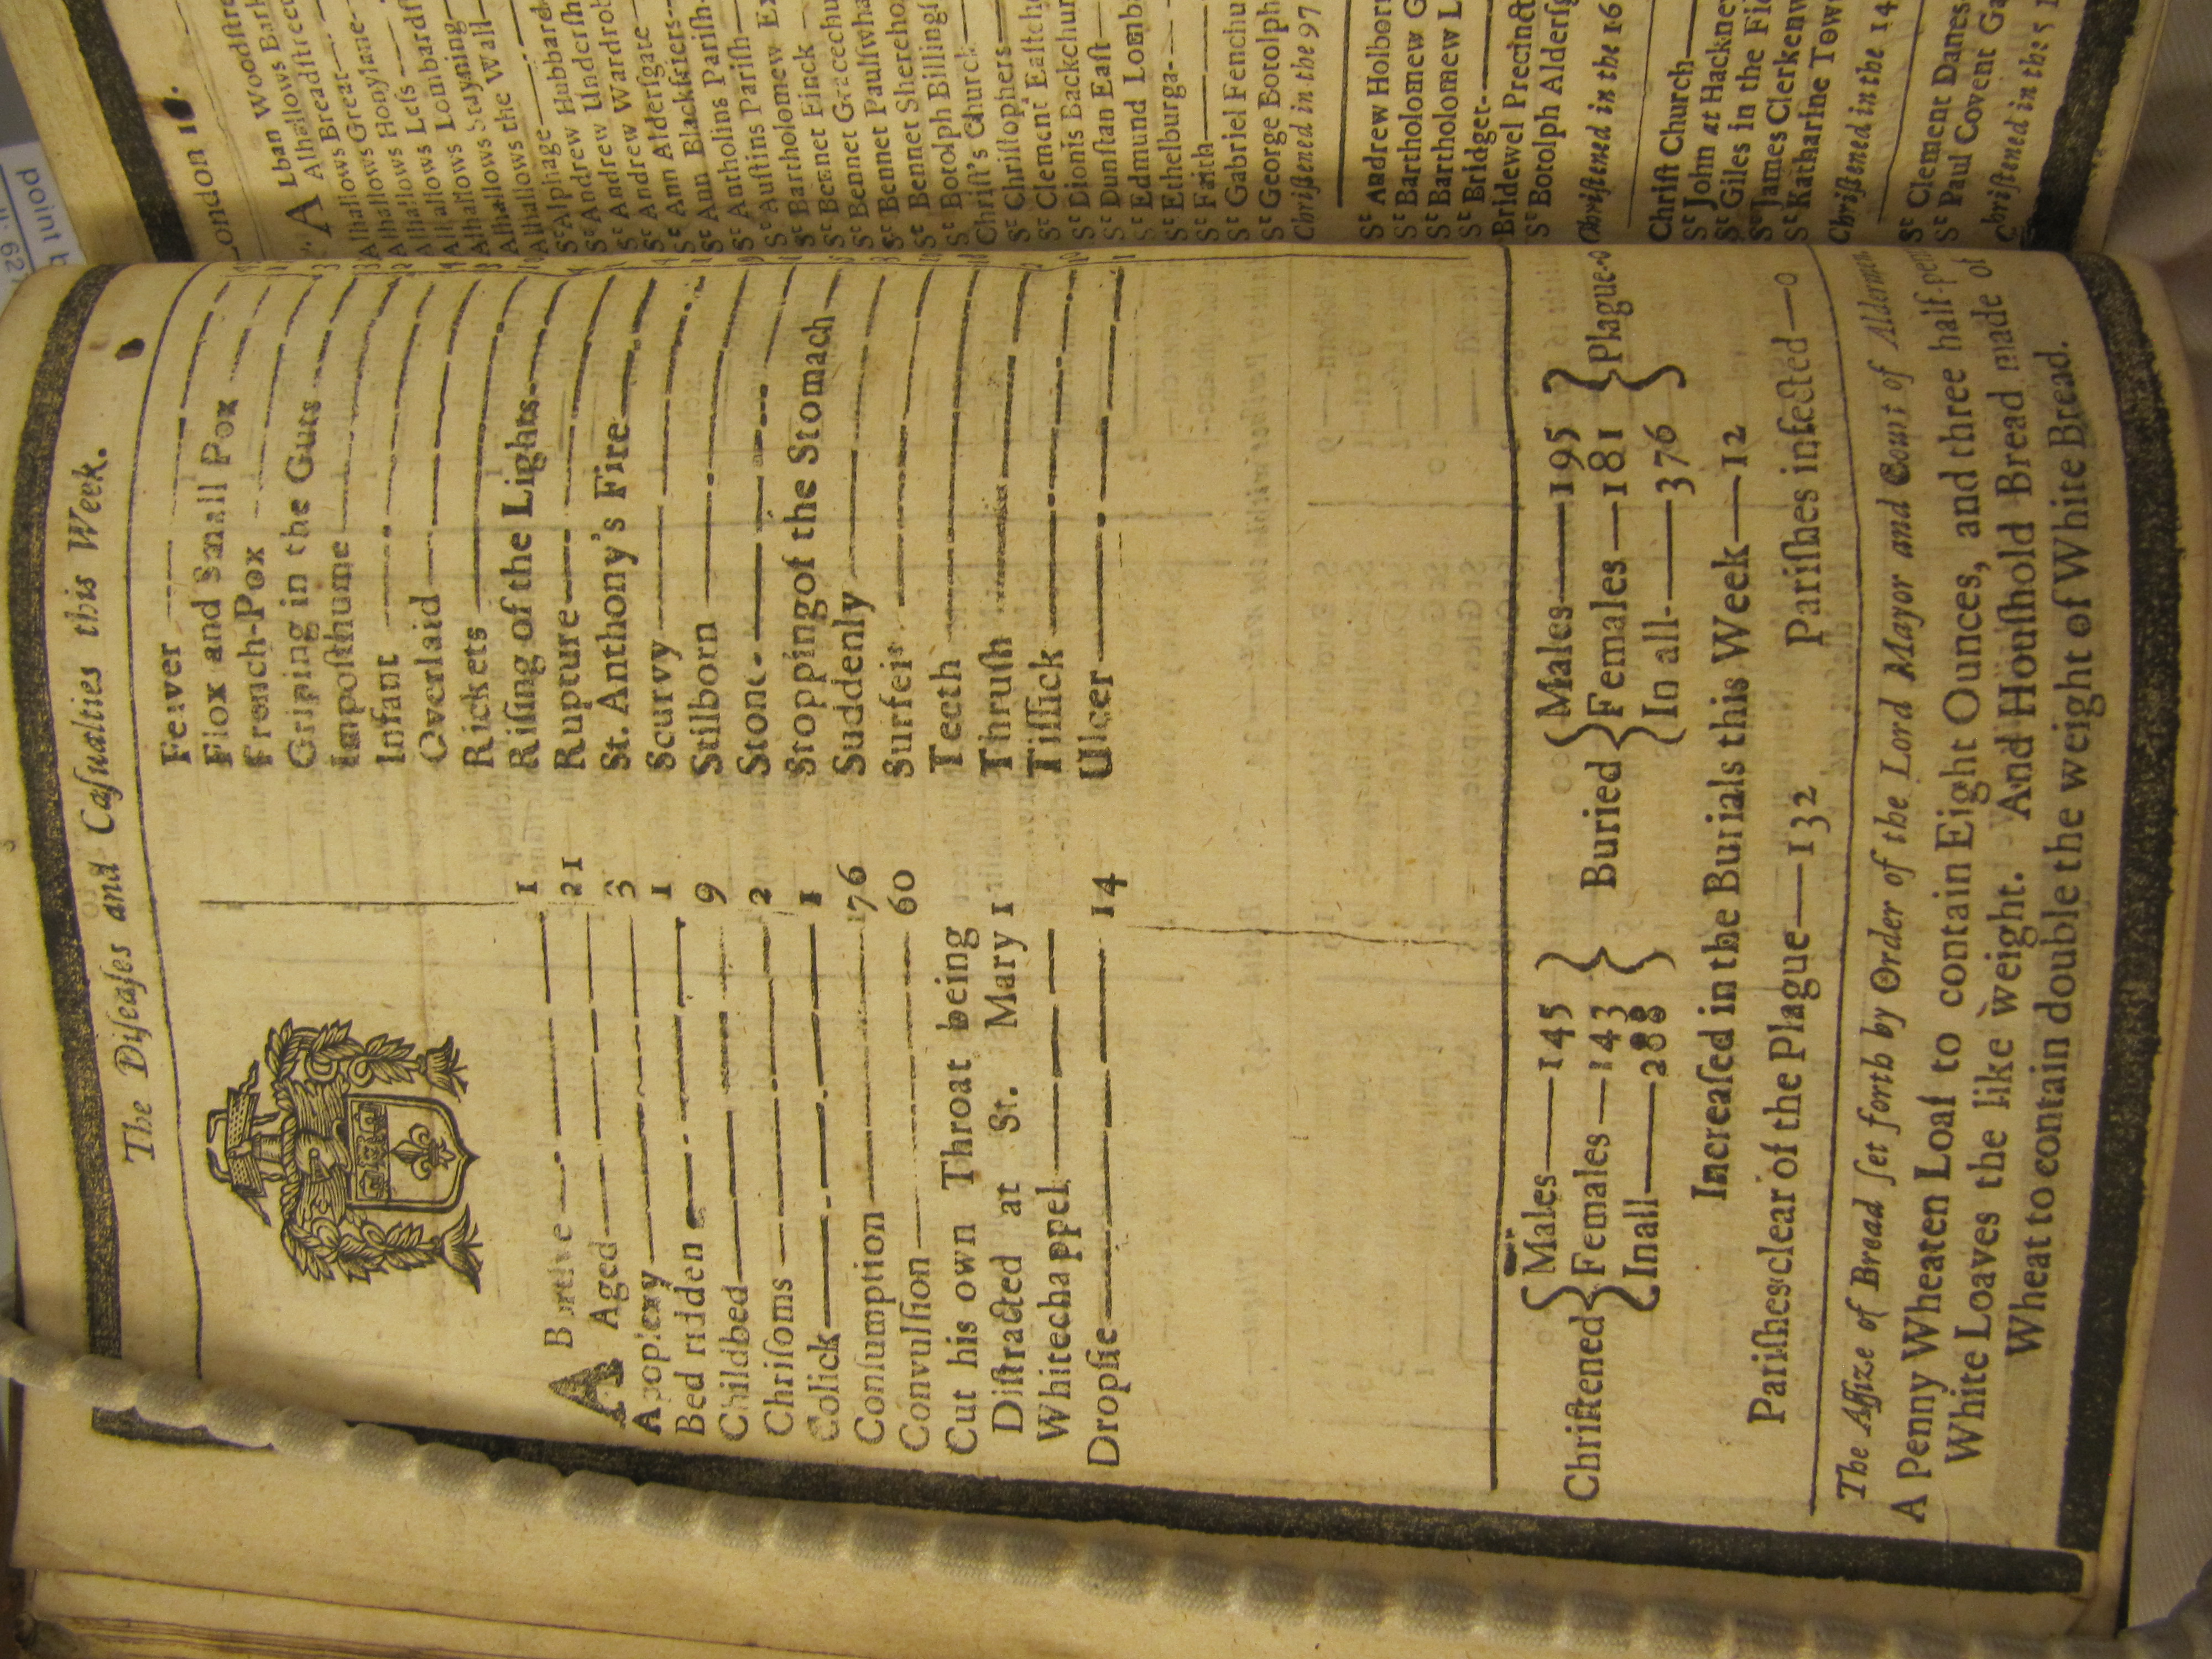 The Diſeaſes and Caſualties this Week.
ABortive 1
Aged 21
Apoplexy 3
Bed ridden 1
Childbed 9
Chriſoms 2
Colick 1
Conſumption 76
Convulſion 60
Cut his own Throat being
Diſtracted at St. Mary 1
Whitechappel
Dropſie 14
Fever
Flox and Small Pox
French-Pox
Griping in the Guts
Impoſthume
Infant
Overlaid
Rickets
Riſing of the Lights
Rupture
St. Anthony's Fire
Scurvy
Stilborn
Stone
Stopping of the Stomach
Suddenly
Surfeit
Teeth
Thruſh
Tiſſick
Ulcer
Chriſtened
Males 145
Females 143
In all 288
Buried
Males 195
Females 181
In all 376
Plague 0
Increaſed in the Burials this Week 12
Pariſhes clear of the Plague 132 Pariſhes infected 0
The Aſſize of Bread ſet forth by Order of the Lord Mayor and Court of Aldermen
A Penny Wheaten Loaf to contain Eight Ounces, and three half-pen
White Loaves the like weight. And Houſhold Bread made of
Wheat to contain double the weight of White Bread.
London
ALban Woodſtre
Alhallows Bark
Alhallows Breadſtreet
Alhallows Great
Alhallows Honylane
Alhallows Leſs
Alhallows Lombardſt
Alhallows Stayning
Alhallows the Wall
St Alphage
St Andrew Hubbard
St Andrew Underſh
St Andrew Wardrob
St Ann Alderſgate
St Ann Blackfriers
St Antholins Pariſh
St Auſtins Pariſh
St Bartholomew Ex
St Bennet Finck
St Bennet Gracechu
St Bennet Paulſwha
St Bennet Shereho
St Botolph Billingſ
Chriſt's Church
St Chriſtophers
St Clement Eaſtche
St Dionis Backchur
St Dunſtan Eaſt
St Edmund Lomba
St Ethelburga
St Faith
St Gabriel Fenchu
St George Botolph
Chriſtened in the 97
St Andrew Holborn
St Bartholomew G
St Bartholomew L
St Bridget
Bridewel Precinct
St Botolph Alderſg
Chriſtened in the 16
Chriſt Church
St John at Hackney
St Giles in the Fie
St James Clerkenw
St Katharine Towe
Chriſtened in the 14
St Clement Danes
St Paul Covent Ga
Chriſtened in the 5
point